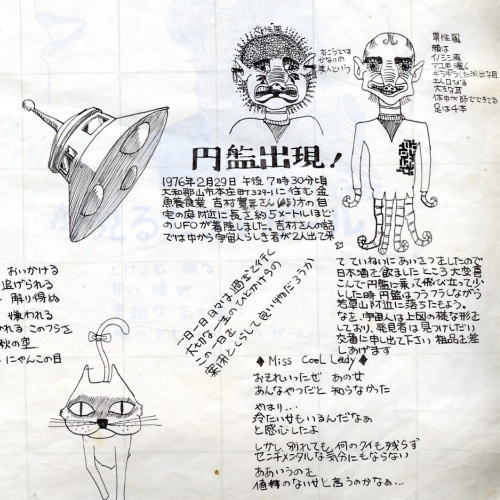 むこうでは
かないりの
美人という
男性風
顔は
イノシシ風
マユモ濃く
ギラギラした派出な目
キバ口びる
大きな耳
体中が節でできてる
足は4本
円盤出現!
1976年2月29日 午後7時30分頃
大和郡山市本庄町322に住む金
魚養食業 吉村寛三さん(48)方の自
宅の庭附近に長さ約5メートルほど
のUFOが着陸しました。吉村さんの話
では中から宇宙人らしき者が2人出て来
て ていねいにあいさつをしたので
日本酒を飲ましたところ大変喜
こんで円盤に乗って飛び立って少
しした時 円盤はフラフラしながら
若草山附近に落ちたもよう。
なを、宇宙人は上図の様な形を
しており、発見者は見つけしだい
交番に申し出て下さい 粗品を差
しあげます
おいかける
追げられる
解り得ぬ
嫌われる
れる このフラを
秋の空
にゃんこの目
一日一日日々は過去で行く
大切な一生のひとかけらの
この一日を
楽団とくらして良い物だろうか
◆Miss Cool Lady◆
おそれいったぜ あの女
あんなやつだと 知らなかった
やはり…
冷たい女もいるんだなあ
と感心したよ
しかし 別れても 何のクイも残らず
センチメンタルな気分にもならない
ああいうのも
値線のない女と言うのかなぁ…